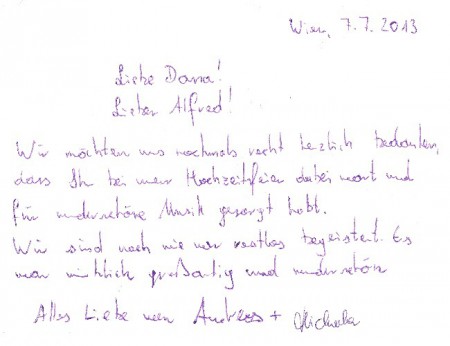 Wien, 7.7.2013
Liebe Dana!
Lieber Alfred!
Wir möchten uns nochmals recht herzlich bedanken,
dass Ihr bei unser Hochzeitsfeier dabei wart und
für wunderschöne Musik gesorgt habt.
Wir sind nach wie vor restlos begeistert. Es
war wirklich großartig und wunderschön
Alles Liebe von Andreas + Michaela